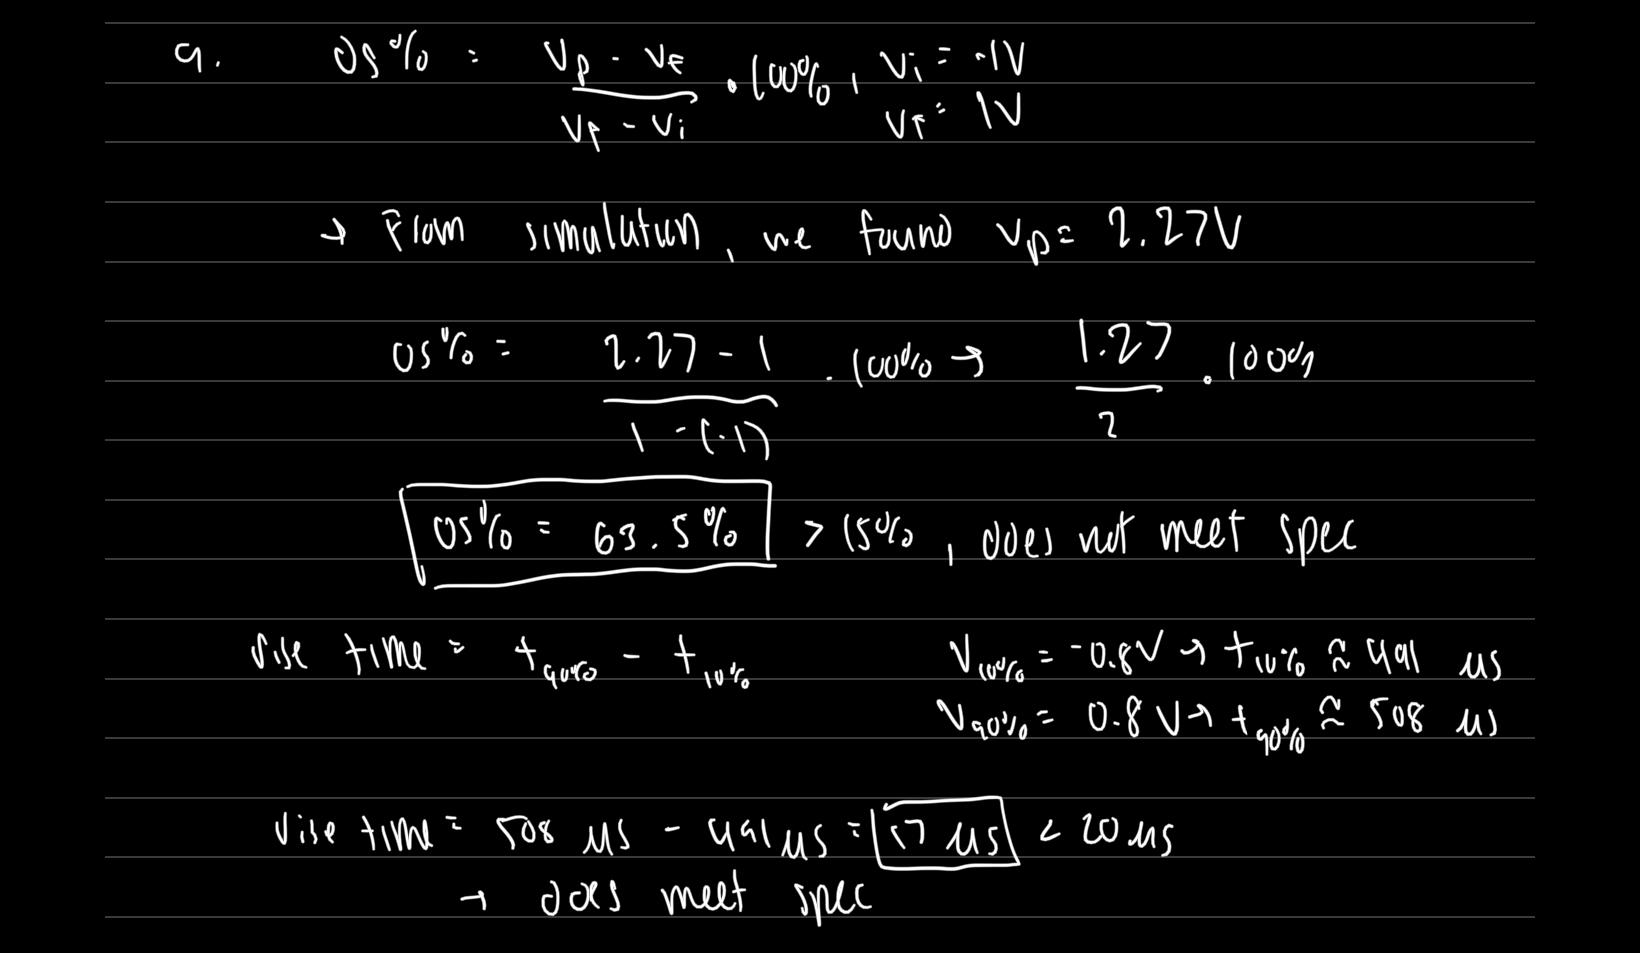 a. OS% = (Vp - Vf) / (Vf - Vi) · 100%, Vi = -1V
Vf = 1V
→ From simulation, we found Vp = 2.27V
OS% = (2.27 - 1) / (1 - (-1)) · 100% → 1.27 / 2 · 100%
OS% = 63.5% > 15%, does not meet spec
rise time = t90% - t10%
V10% = -0.8V → t10% ≈ 491 µs
V90% = 0.8V → t90% ≈ 508 µs
rise time = 508 µs - 491 µs = 17 µs < 20 µs
→ does meet spec